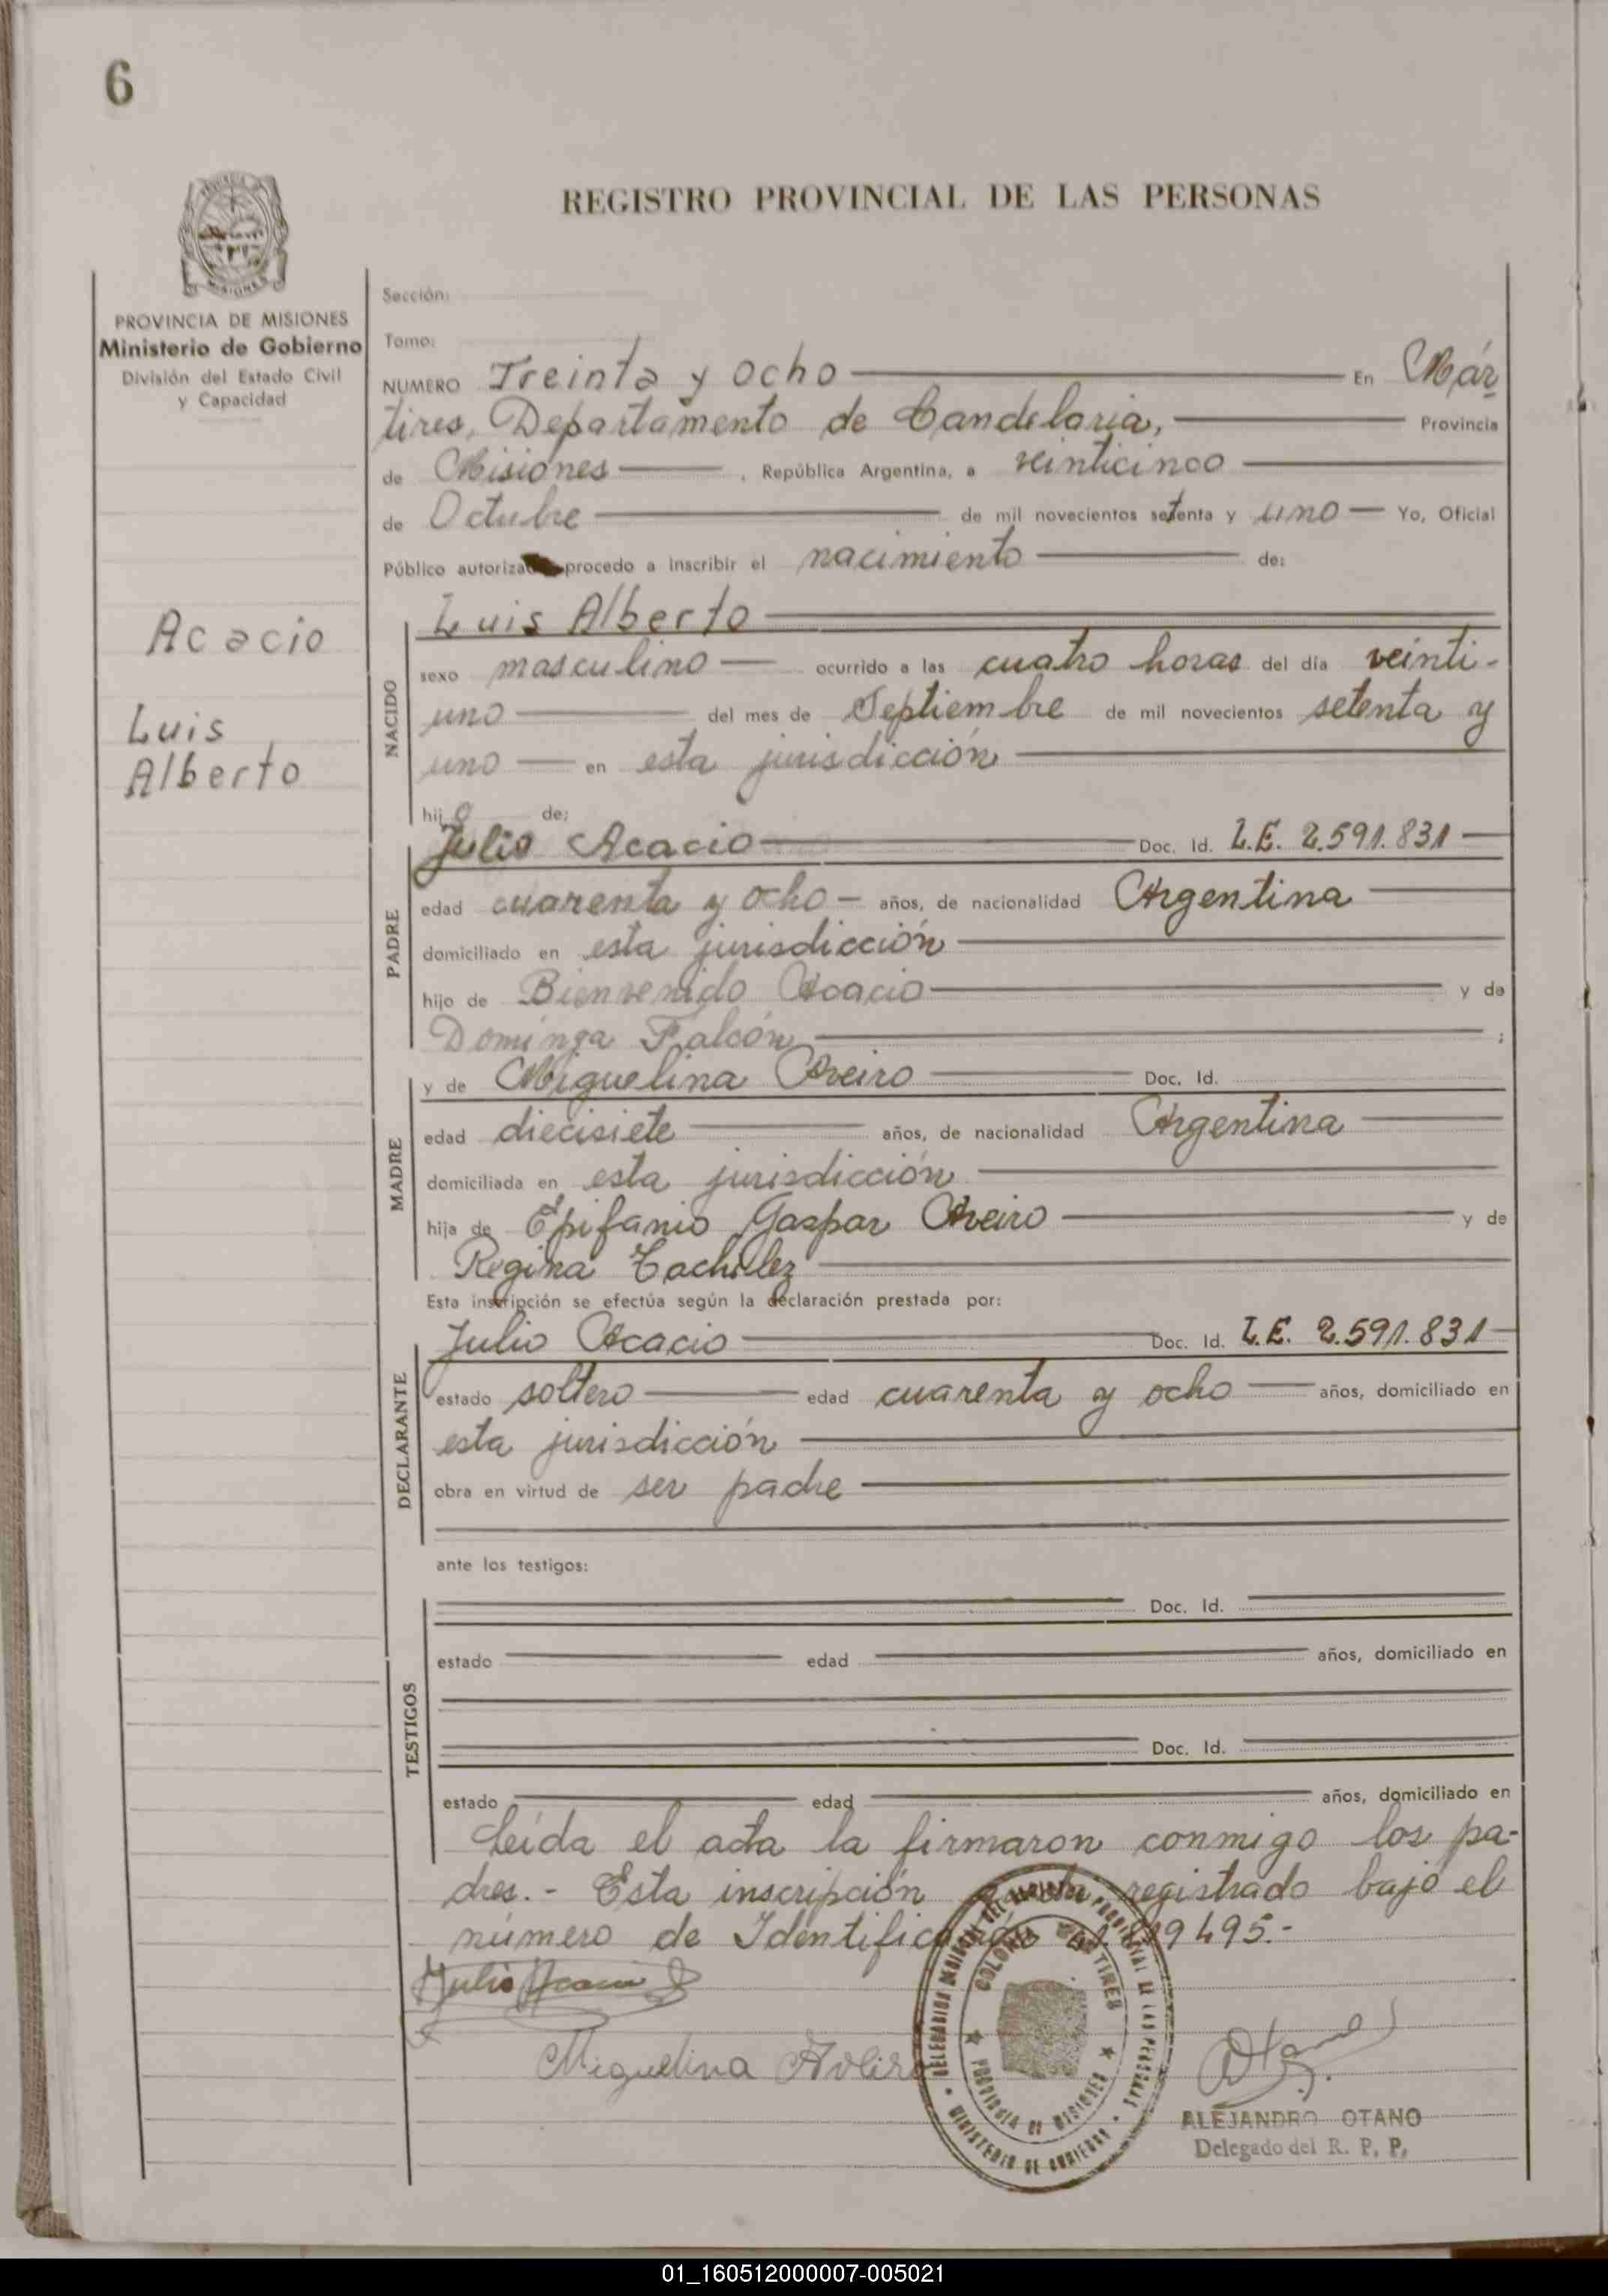 6
REGISTRO PROVINCIAL DE LAS PERSONAS
MISIONES
PROVINCIA DE MISIONES
Ministerio de Gobierno
División del Estado Civil
y Capacidad
Acacio
Luis
Alberto
Sección:
Tomo:
NUMERO Treinta y ocho En Már
tires, Departamento de Candelaria, Provincia
de Misiones , República Argentina, a veinticinco
de Octubre de mil novecientos setenta y uno Yo, Oficial
Público procedo a inscribir el nacimiento de:
NACIDO
Luis Alberto
sexo masculino ocurrido a las cuatro horas del día veinti-
uno del mes de Septiembre de mil novecientos setenta y
uno en esta jurisdicción
hijo de:
PADRE
Julio Acacio Doc. Id. L.E. 2.591.831
edad cuarenta y ocho años, de nacionalidad Argentina
domiciliado en esta jurisdicción
hijo de Bienvenido Acacio y de
Dominga Falcón ;
MADRE
y de Miguelina Doc. Id.
edad diecisiete años, de nacionalidad Argentina
domiciliada en esta jurisdicción
hija de Epifanio Gaspar y de
Regina
Esta inscripción se efectúa según la declaración prestada por:
DECLARANTE
Julio Acacio Doc. Id. L.E. 2.591.831
estado soltero edad cuarenta y ocho años, domiciliado en
esta jurisdicción
obra en virtud de ser padre
ante los testigos:
TESTIGOS
Doc. Id.
estado edad años, domiciliado en
Doc. Id.
estado edad años, domiciliado en
Leída el acta la firmaron conmigo los pa-
dres.- Esta inscripción registrado bajo el
número de Identificación
Julio Acacio
Miguelina
COLONIA MARTIRES
PROVINCIA DE MISIONES
MINISTERIO DE GOBIERNO
ALEJANDRO OTANO
Delegado del R. P. P.
01_160512000007-005021